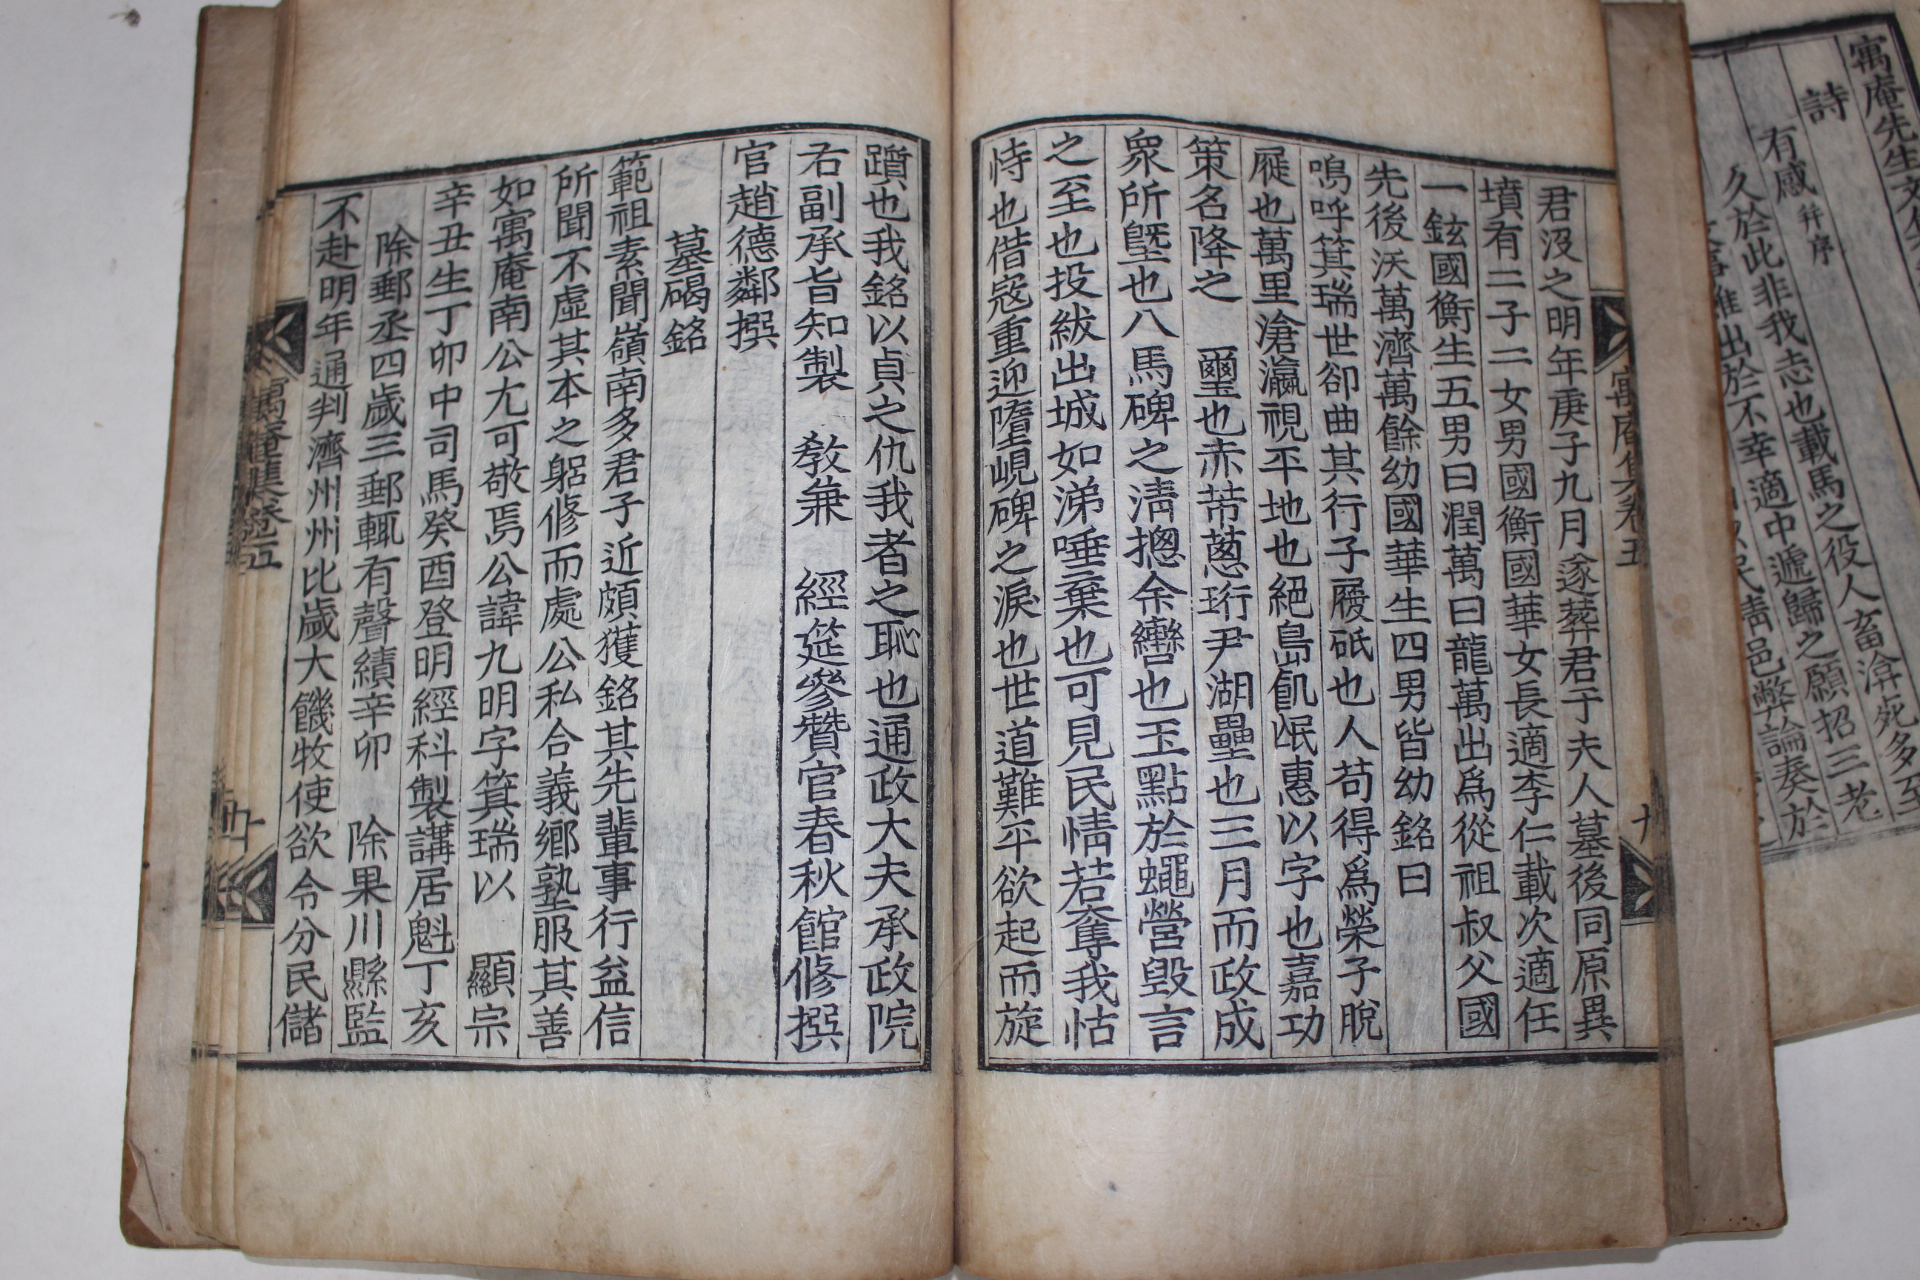 君沒之明年庚子九月遂葬君于夫人墓後同原異
墳有二子二女男國衡國華女長適李仁載次適任
一鉉國衡生五男曰潤萬曰龍萬出爲從祖叔父國
先後沃萬濟萬餘幼國華生四男皆幼銘曰
鳴呼箕瑞世卻曲其行子履砥也人苟得爲榮子脫
屣也萬里滄瀛視平地也絕島飢氓惠以字也嘉功
策名降之 璽也赤芾蔥珩尹湖壘也三月而政成
衆所曁也八馬碑之淸摠余轡也玉點於蠅營毁言
之至也投紱出城如涕唾棄也可見民情若奪我怙
恃也借寇重迎墮峴碑之淚也世道難平欲起而旋
躓也我銘以貞之仇我者之恥也通政大夫承政院
右副承旨知製 敎兼 經筵參贊官春秋館修撰
官趙德鄰撰
墓碣銘
範祖素聞嶺南多君子近頗獲銘其先輩事行益信
所聞不虛其本之躬修而處公私合義鄉塾服其善
如寓庵南公尤可敬焉公諱九明字箕瑞以 顯宗
辛丑生丁卯中司馬癸酉登明經科製講居魁丁亥
除郵丞四歲三郵輒有聲績辛卯 除果川縣監
不赴明年通判濟州州比歲大饑牧使欲令分民儲
寓庵集卷之五
寓庵集卷五
九
寓庵先生文集
詩
有感 幷序
久於此非我志也載馬之役人畜渰死多至
出於不幸適中遞歸之願招三老
民淸邑弊論奏於